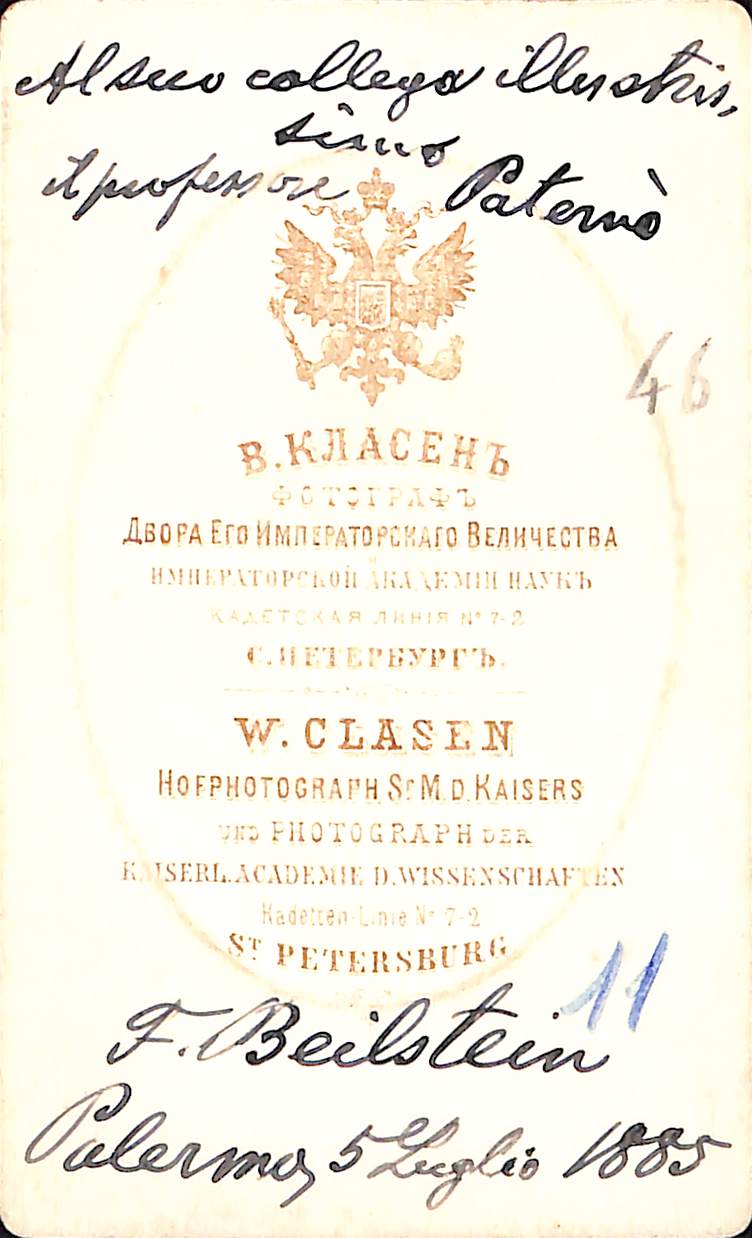 Al suo collega illustris,
simo
il professore Paternò
46
В. КЛАСЕНЪ
ФОТОГРАФЪ
ДВОРА ЕГО ИМПЕРАТОРСКАГО ВЕЛИЧЕСТВА
И
ИМПЕРАТОРСКОЙ АКАДЕМІИ НАУКЪ
КАДЕТСКАЯ ЛИНІЯ № 7-2
С. ПЕТЕРБУРГЪ.
W. CLASEN
HOFPHOTOGRAPH Sr M. D. KAISERS
UND PHOTOGRAPH DER
KAISERL. ACADEMIE D. WISSENSCHAFTEN
Kadetten-Linie № 7-2
ST PETERSBURG
11
F. Beilstein
Palermo, 5 Luglio 1885